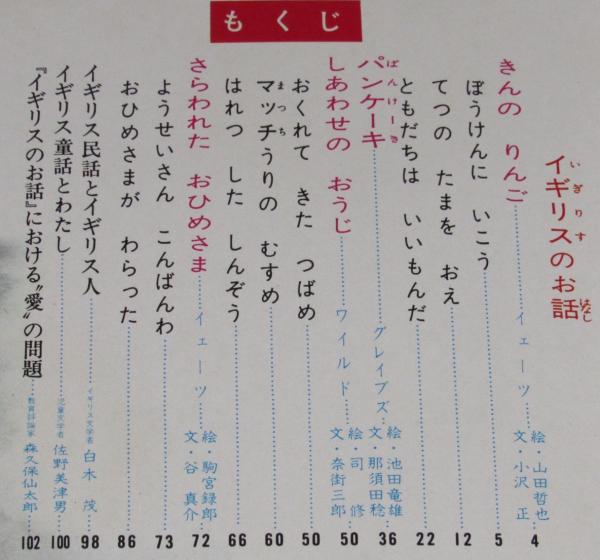 もくじ
イギリスのお話
いぎりす はなし
きんの りんご……イェーツ 絵・山田哲也 文・小沢 正 4
ぼうけんに いこう……5
てつの たまを おえ……12
ともだちは いいもんだ……22
パンケーキ……グレイブズ 絵・池田竜雄 文・那須田稔 36
ぱんけーき
しあわせの おうじ……ワイルド 絵・司 修 文・奈街三郎 50
おくれて きた つばめ……50
マッチうりの むすめ……60
まっち
はれつ した しんぞう……66
さらわれた おひめさま……イェーツ 絵・駒宮録郎 文・谷 真介 72
ようせいさん こんばんわ……73
おひめさまが わらった……86
イギリス民話とイギリス人……イギリス文学者 白木 茂 98
イギリス童話とわたし……児童文学者 佐野美津男 100
『イギリスのお話』における〝愛〟の問題……教育評論家 森久保仙太郎 102